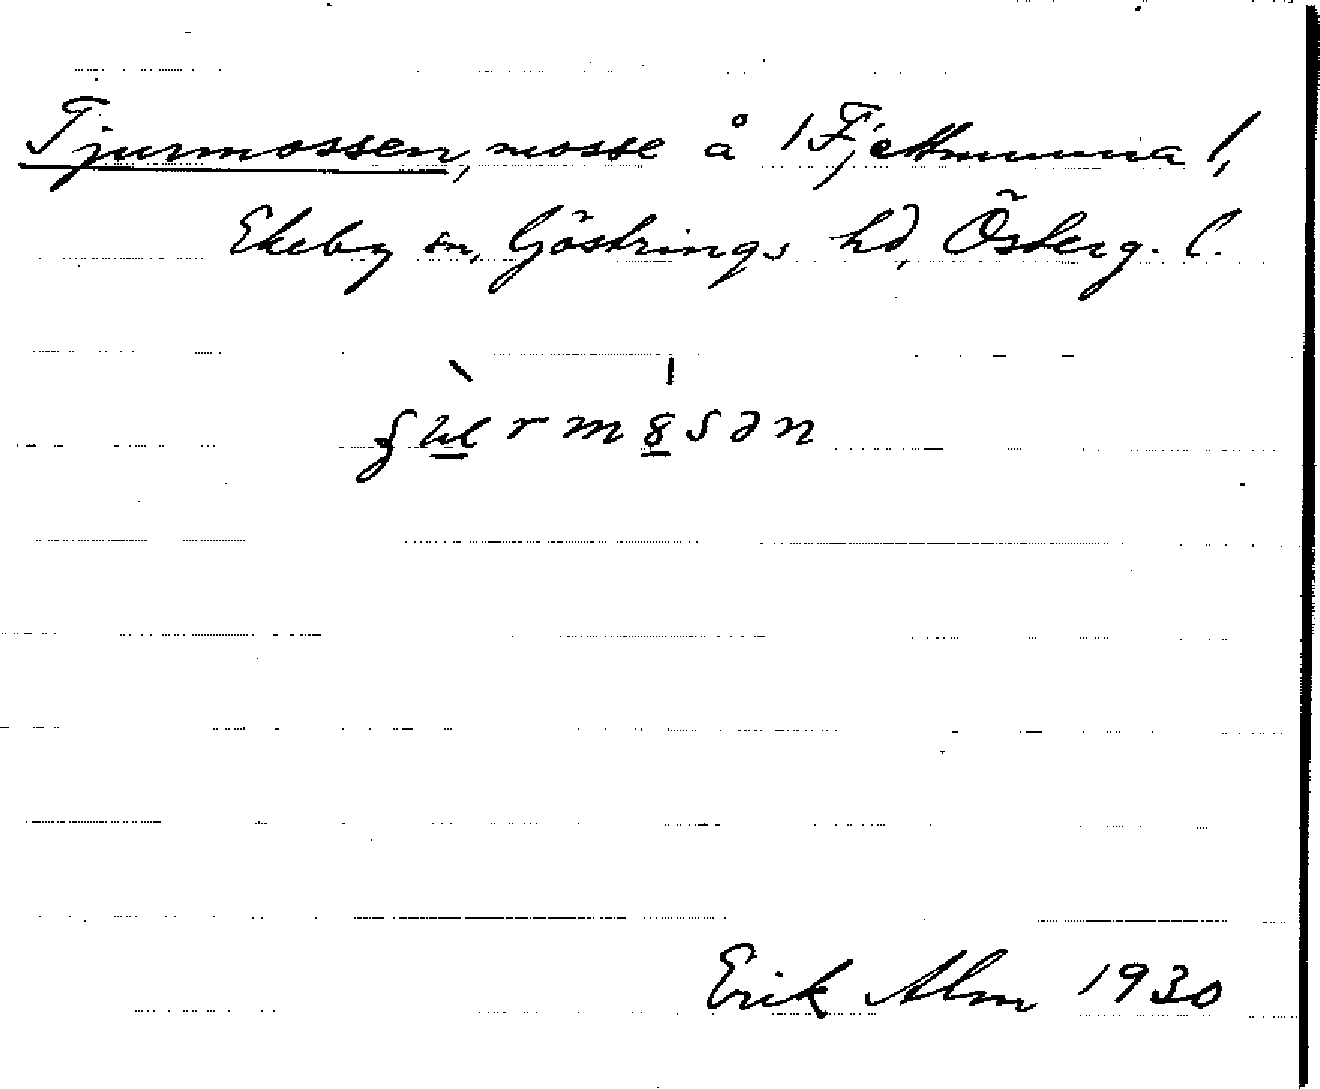 Tjurmossen, mosse å 1 Fjettmunna l,
Ekeby sn, Göstrings hd, Österg. l.
Erik Alm 1930